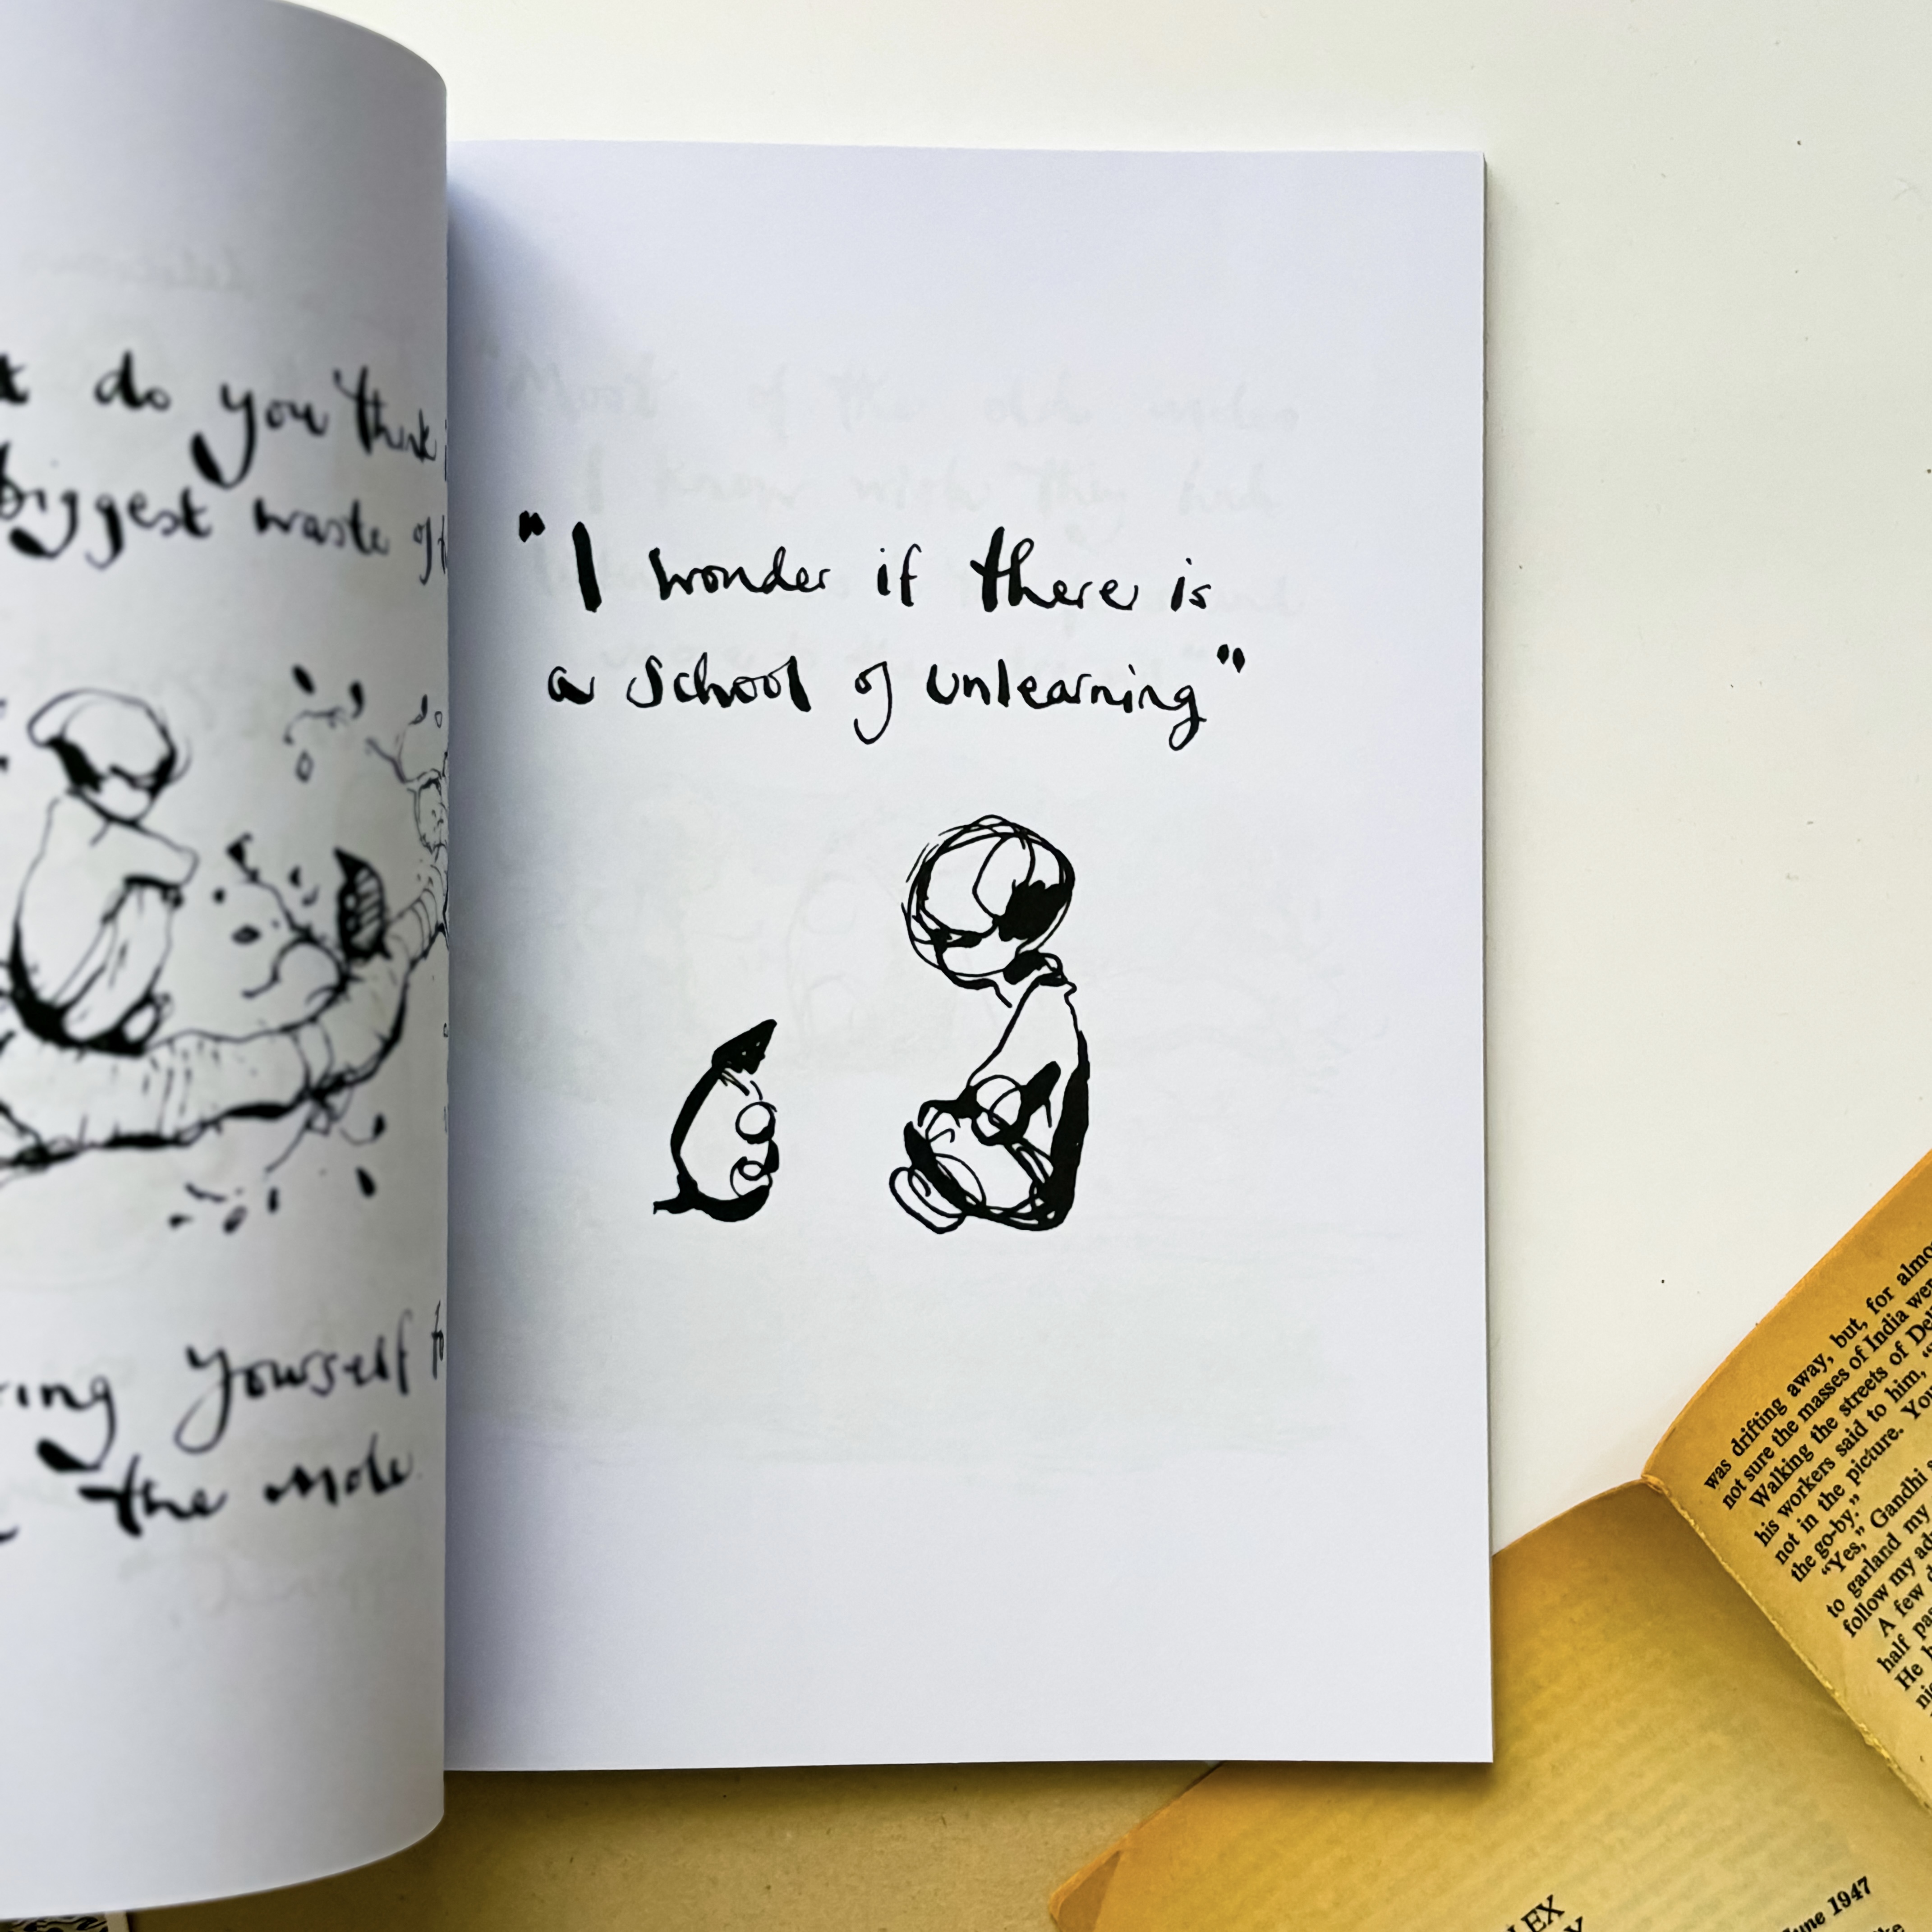 do you think
biggest waste of
yourself
the mole
"I wonder if there is
a school of unlearning"
was drifting away, but, for
not sure the masses of India
Walking the streets of
his workers said to him,
not in the picture.
the go-by."
"Yes," Gandhi
to garland my
follow my
A few
half
He
June 1947